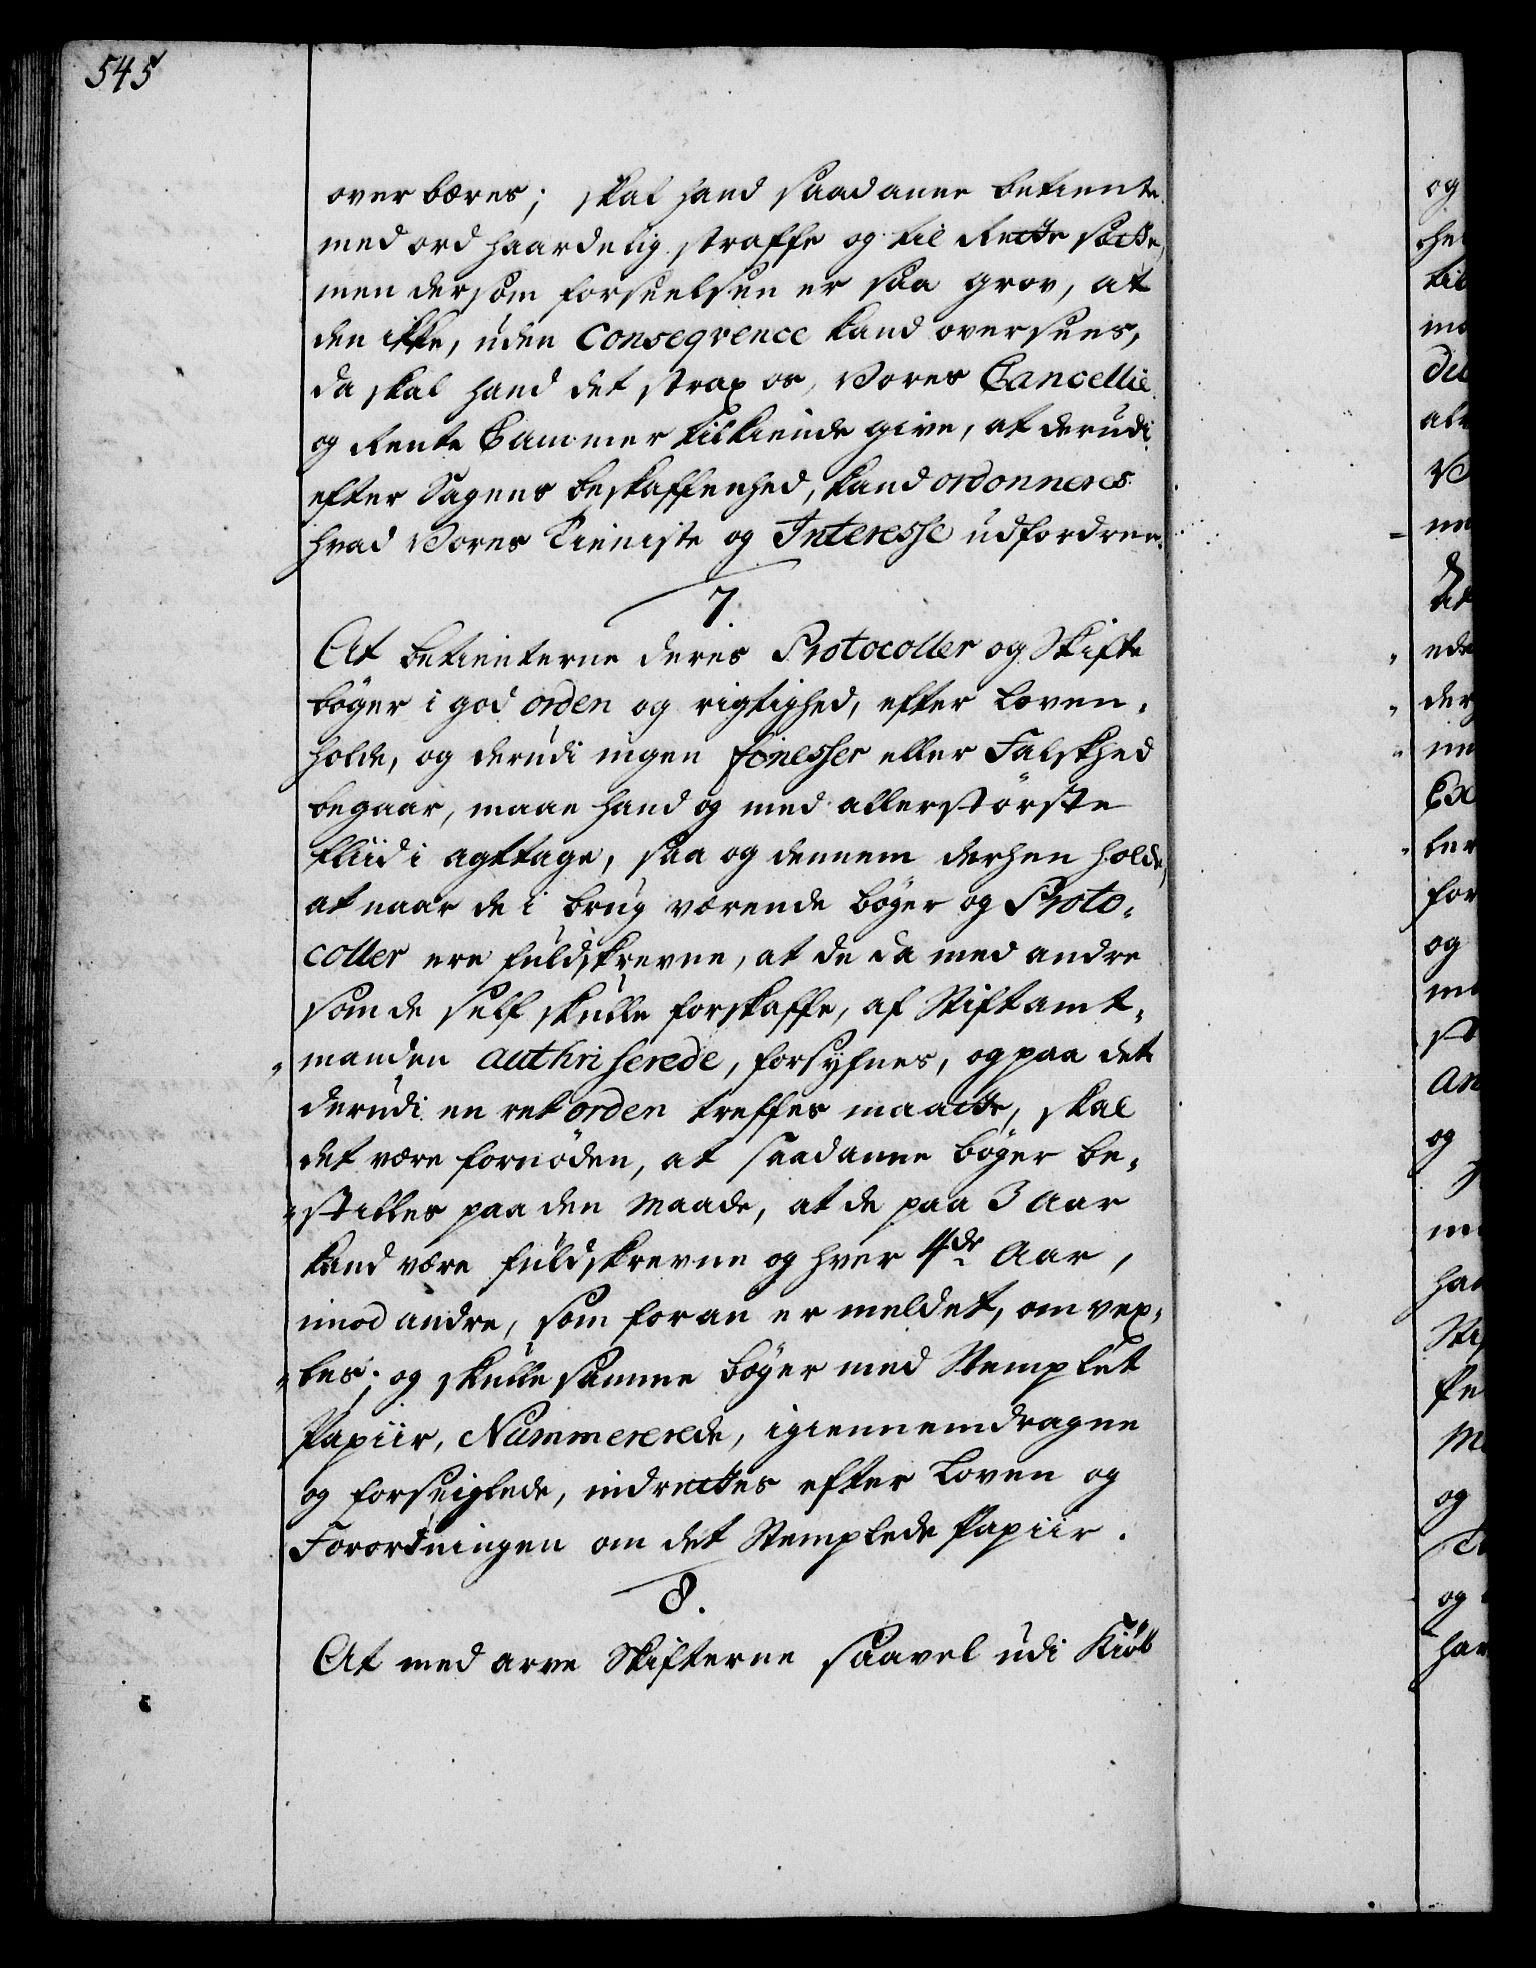 545
over bæres; skal hand saadanne betiente
med ord haardelig straffe og til Rette sætte,
men dersom forseelsen er saa grov, at
den ikke, uden Conseqvence kand oversees,
da skal hand det strax os, Vores Cancellie
og Rente Cammer tilkiende give, at derudi
efter Sagens beskaffenhed, kand ordonneres
hvad Vores Tieniste og Interesse udfordrer.
7.
At betienterne deres Protocoller og Skifte
bøger i god orden og rigtighed, efter Loven,
holde, og derudi ingen finesser eller Falskhed
begaar, maae hand og med allerstørste
fliid i agttage, saa og dennem derhen holde,
at naar de i brug værende bøger og Proto-
coller ere fuldskrevne, at de da med andre
som de self skulle forskaffe, af Stiftamt-
manden authriserede, forsyfnes, og paa det
derudi en ret orden treffes maatte, skal
det være fornøden, at saadanne bøger be-
stilles paa den Maade, at de paa 3 Aar
kand være fuldskrevne og hver 4de Aar,
imod andre, som foran er meldet, om vex-
les; og skulle samme bøger med Stemplet
Papiir, Nummererede, igiennemdragne
og forseiglede, indrettes efter Loven og
Forordningen om det Stemplede Papiir.
8.
At med arve Skifterne saavel udi Kiøb